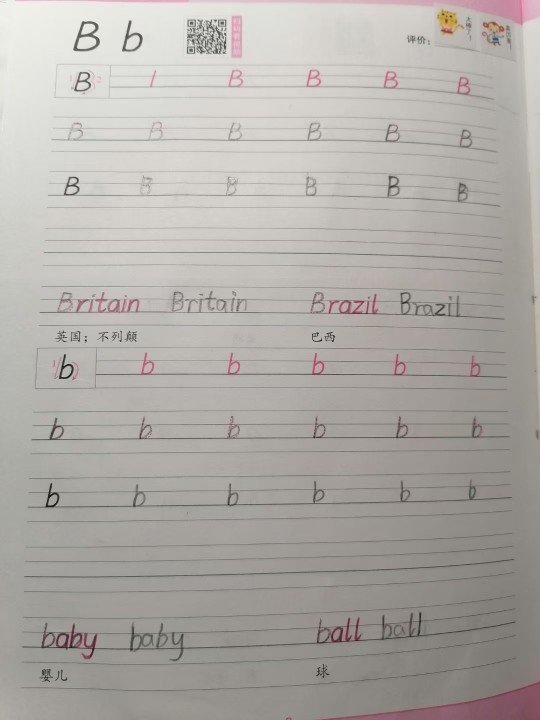 B b 评价:
B 1 B B B B
B B B B B B
B B B B B B
Britain Britain Brazil Brazil
英国；不列颠 巴西
b b b b b b
b b b b b b
b b b b b b
baby baby ball ball
婴儿 球